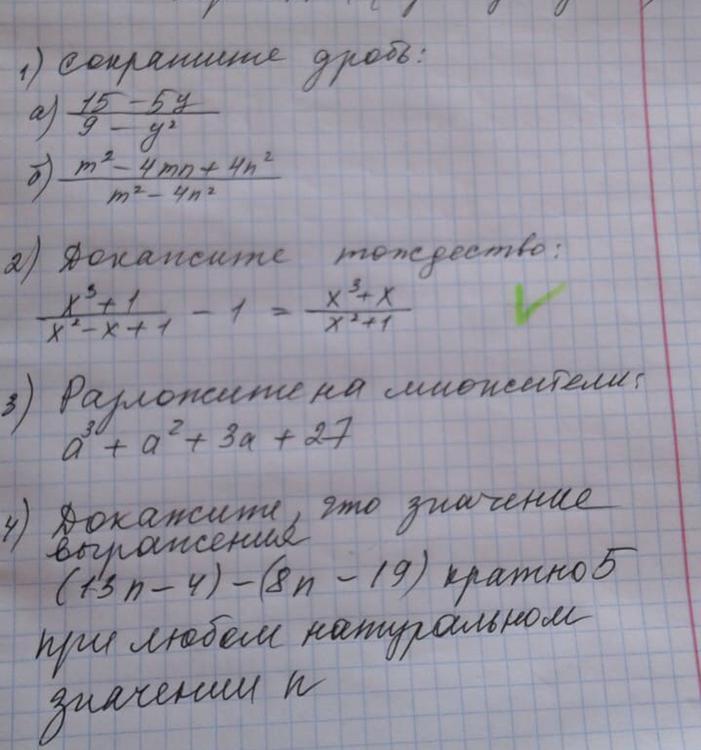 1) Сократите дробь:
а) (15 - 5y)/(9 - y²)
б) (m² - 4mn + 4n²)/(m² - 4n²)
2) Докажите тождество:
(x³ + 1)/(x² - x + 1) - 1 = (x³ + x)/(x² + 1)
3) Разложите на множители:
a³ + a² + 3a + 27
4) Докажите, что значение
выражения
(13n - 4) - (8n - 19) кратно 5
при любом натуральном
значении n